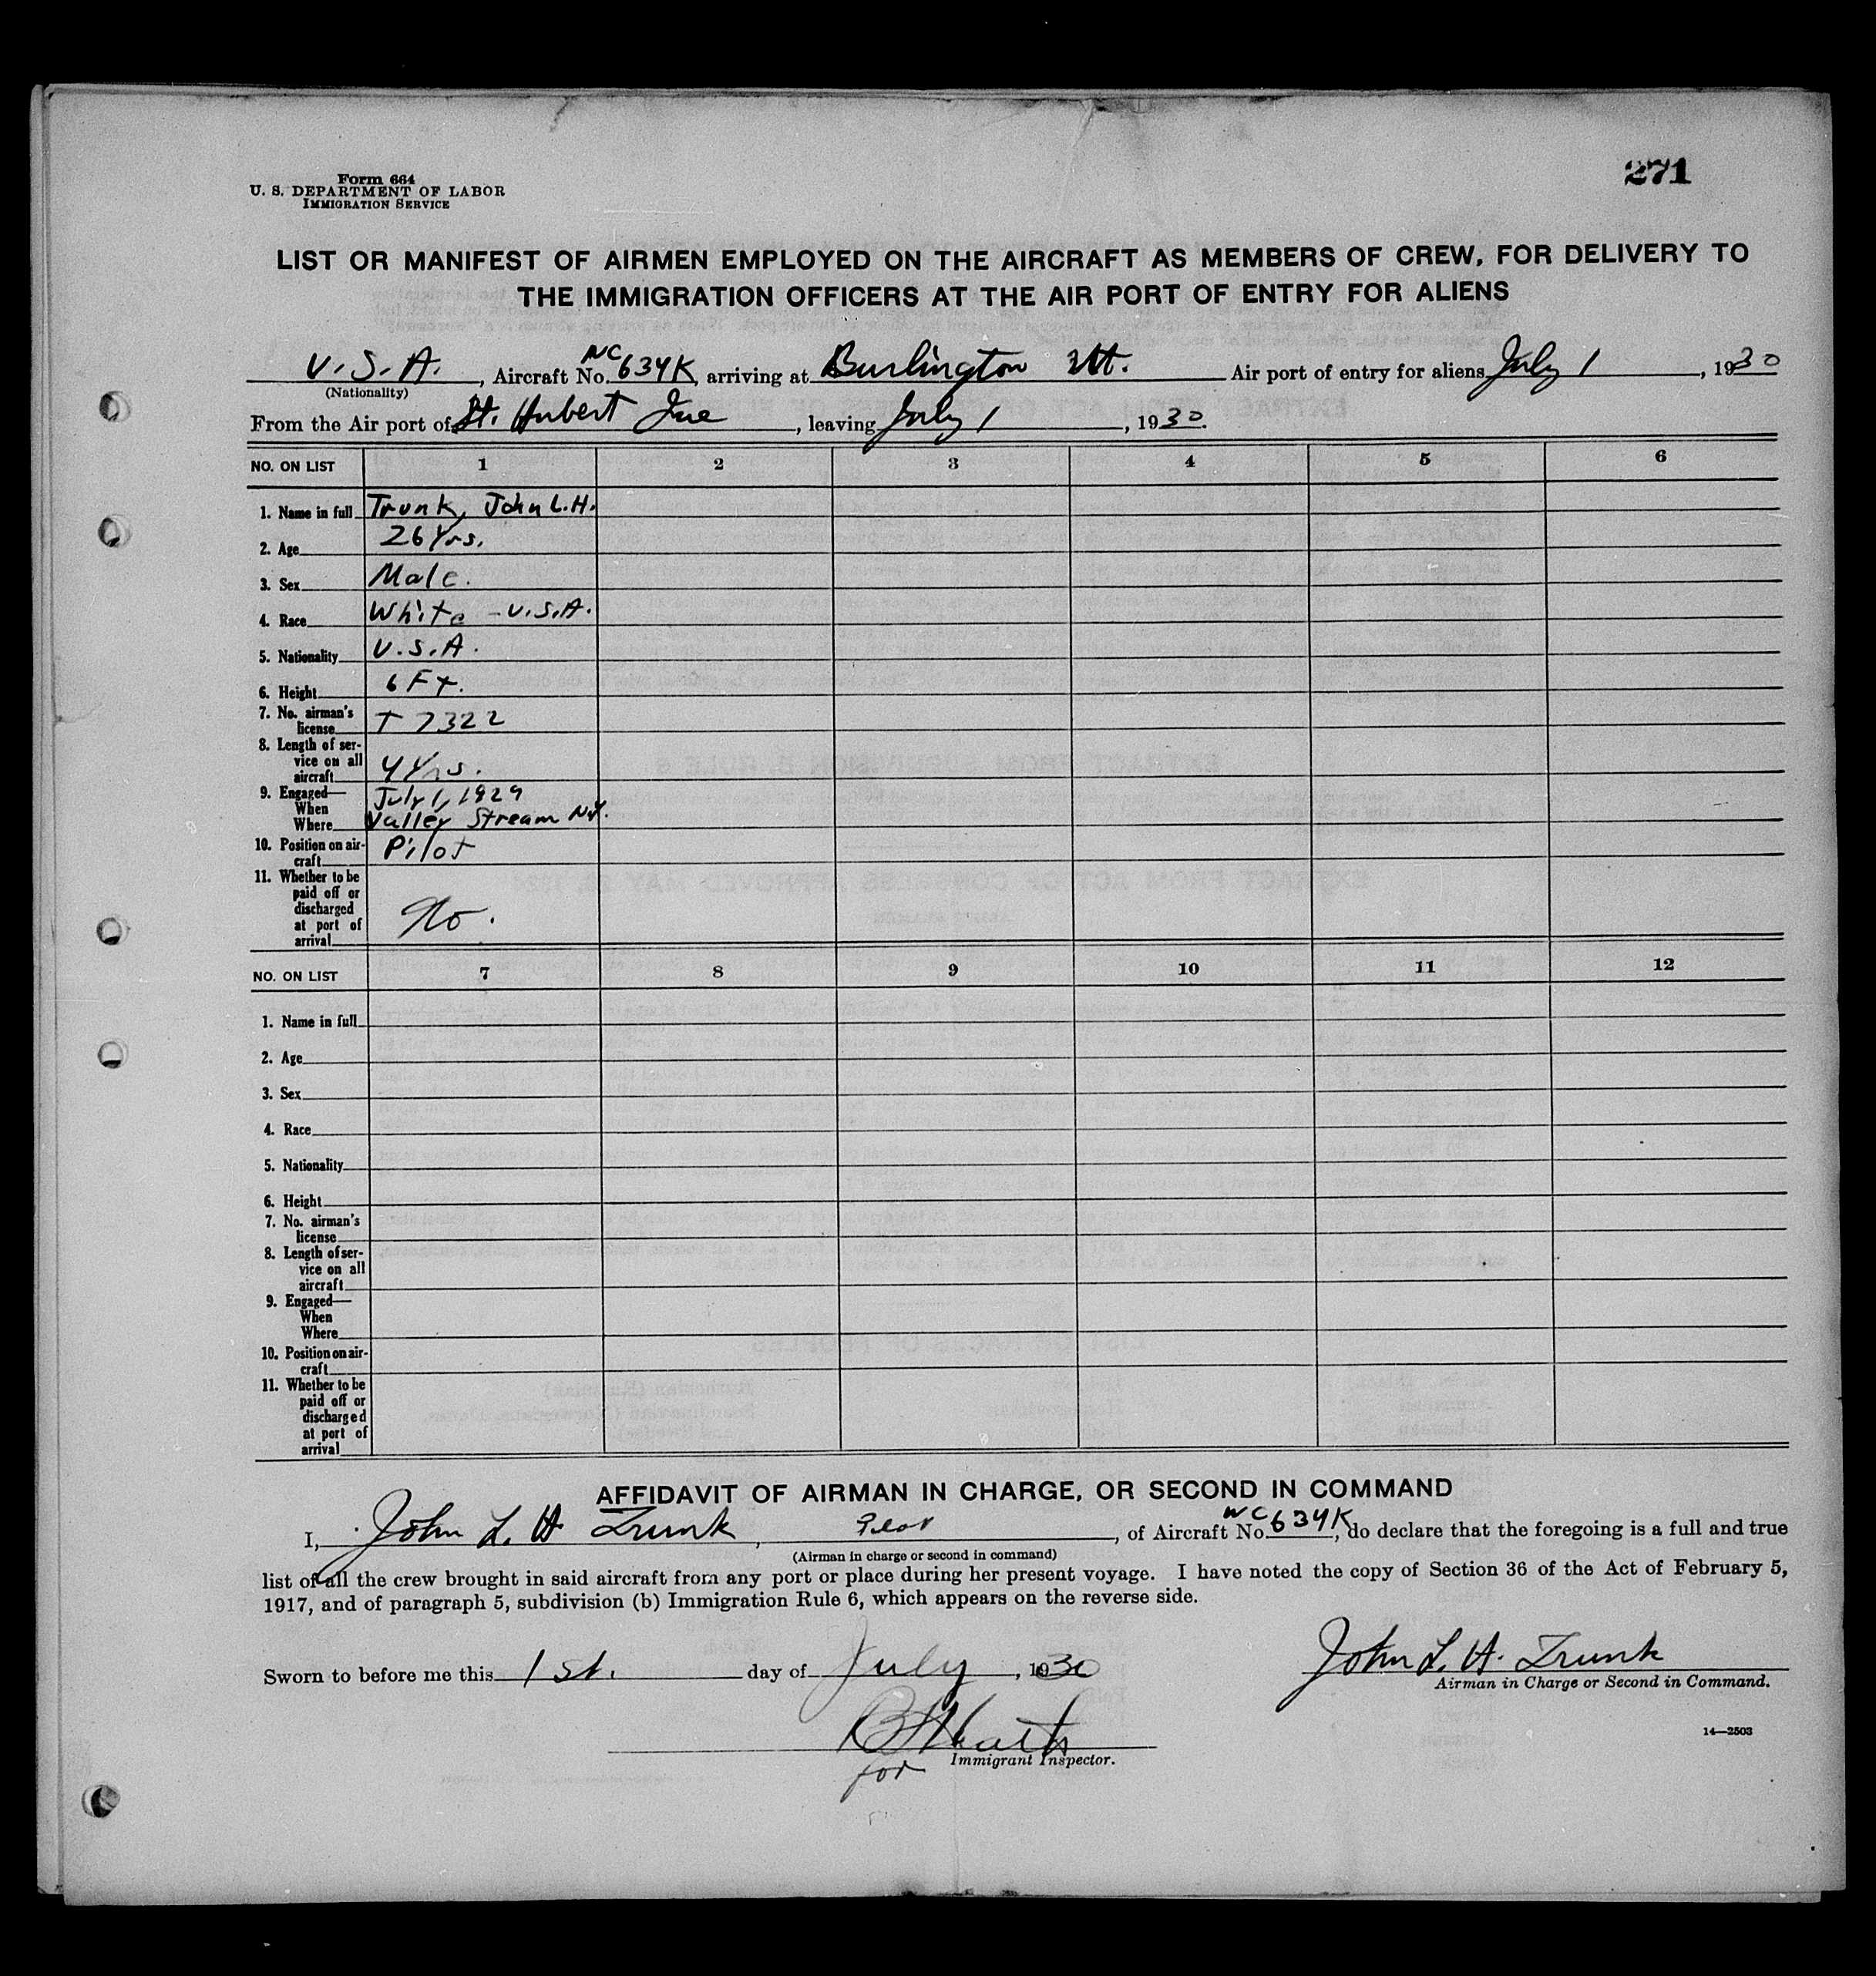 271
Form 664
U. S. DEPARTMENT OF LABOR
IMMIGRATION SERVICE
LIST OR MANIFEST OF AIRMEN EMPLOYED ON THE AIRCRAFT AS MEMBERS OF CREW, FOR DELIVERY TO
THE IMMIGRATION OFFICERS AT THE AIR PORT OF ENTRY FOR ALIENS
U.S.A., Aircraft No. NC634K, arriving at Burlington Vt. Air port of entry for aliens July 1, 1930
(Nationality)
From the Air port of St. Hubert Que, leaving July 1, 1930.
NO. ON LIST 1 2 3 4 5 6
1. Name in full Trunk, John L.H.
2. Age 26 Yrs.
3. Sex Male.
4. Race White - U.S.A.
5. Nationality U.S.A.
6. Height 6 Ft.
7. No. airman's
license T 7322
8. Length of ser-
vice on all
aircraft 4 Yrs.
9. Engaged—
When July 1, 1929
Where Valley Stream N.Y.
10. Position on air-
craft Pilot
11. Whether to be
paid off or
discharged
at port of
arrival No.
NO. ON LIST 7 8 9 10 11 12
1. Name in full
2. Age
3. Sex
4. Race
5. Nationality
6. Height
7. No. airman's
license
8. Length of ser-
vice on all
aircraft
9. Engaged—
When
Where
10. Position on air-
craft
11. Whether to be
paid off or
discharged
at port of
arrival
AFFIDAVIT OF AIRMAN IN CHARGE, OR SECOND IN COMMAND
I, John L. H. Trunk, Pilot, of Aircraft No. NC634K, do declare that the foregoing is a full and true
(Airman in charge or second in command)
list of all the crew brought in said aircraft from any port or place during her present voyage. I have noted the copy of Section 36 of the Act of February 5,
1917, and of paragraph 5, subdivision (b) Immigration Rule 6, which appears on the reverse side.
Sworn to before me this 1st. day of July, 1930
John L. H. Trunk
Airman in Charge or Second in Command.
14—2503
Immigrant Inspector.
for